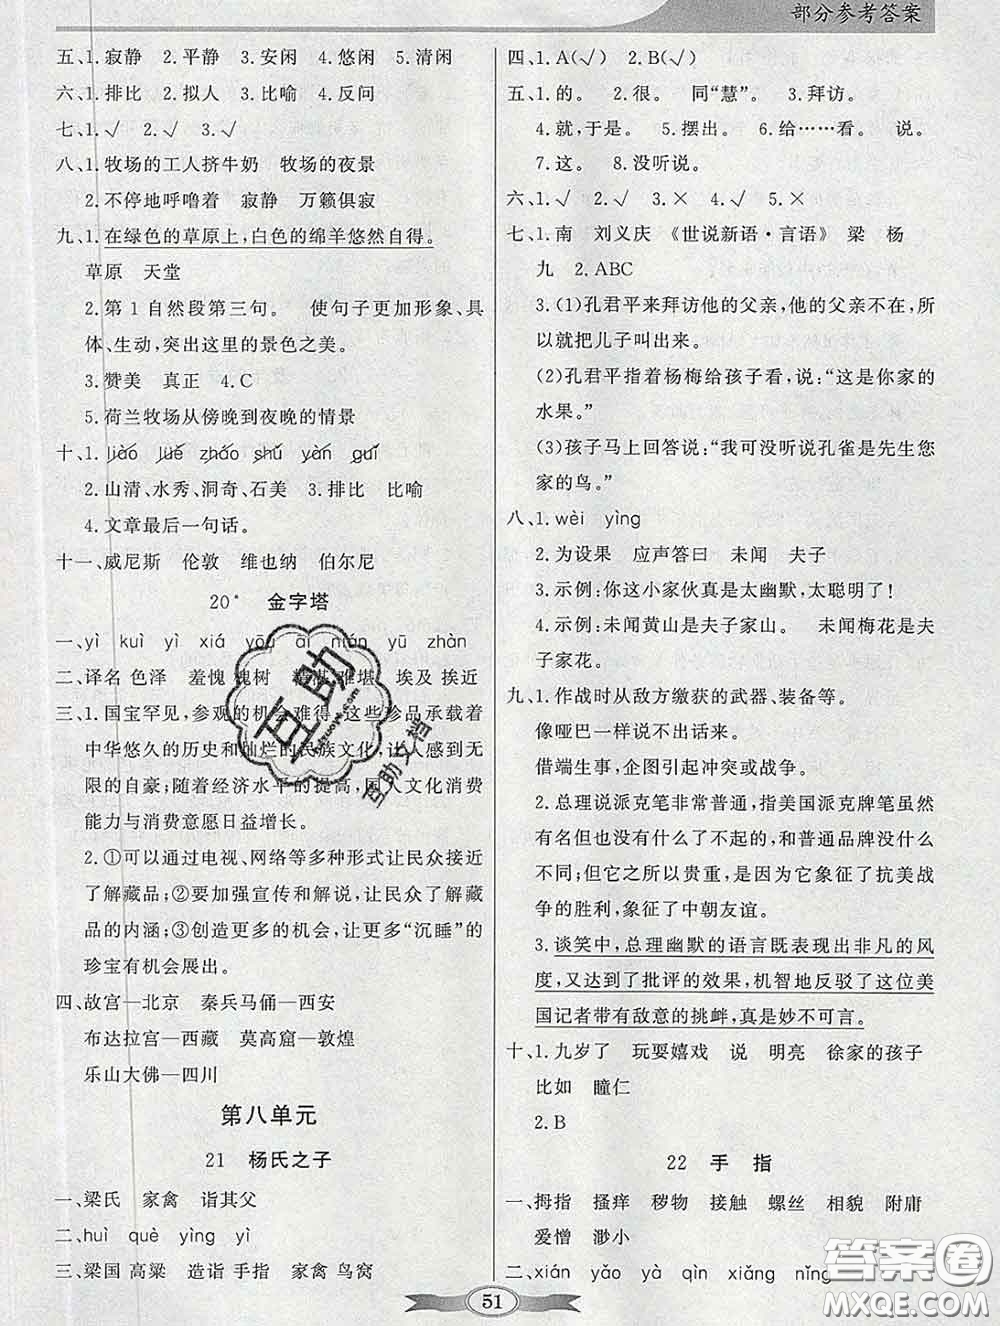 部分参考答案
五、1.寂静 2.平静 3.安闲 4.悠闲 5.清闲
六、1.排比 2.拟人 3.比喻 4.反问
七、1.√ 2.√ 3.√
八、1.牧场的工人挤牛奶 牧场的夜景
2.不停地呼噜着 寂静 万籁俱寂
九、1.在绿色的草原上,白色的绵羊悠然自得。
草原 天堂
2.第1自然段第三句。 使句子更加形象、具
体、生动,突出这里的景色之美。
3.赞美 真正 4.C
5.荷兰牧场从傍晚到夜晚的情景
十、1.liáo lüě zháo shǔ yàn guī
2.山清、水秀、洞奇、石美 3.排比 比喻
4.文章最后一句话。
十一、威尼斯 伦敦 维也纳 伯尔尼
20* 金字塔
一、yì kuì yì xiá yōu āi nán yū zhàn
二、译名 色泽 羞愧 槐树 难堪 埃及 挨近
三、1.国宝罕见,参观的机会难得,这些珍品承载着
中华悠久的历史和灿烂的民族文化,让人感到无
限的自豪;随着经济水平的提高,国人文化消费
能力与消费意愿日益增长。
2.①可以通过电视、网络等多种形式让民众接近
了解藏品;②要加强宣传和解说,让民众了解藏
品的内涵;③创造更多的机会,让更多“沉睡”的
珍宝有机会展出。
四、故宫—北京 秦兵马俑—西安
布达拉宫—西藏 莫高窟—敦煌
乐山大佛—四川
第八单元
21 杨氏之子
一、梁氏 家禽 诣其父
二、huì què yìng yì
三、梁国 高粱 造诣 手指 家禽 鸟窝
四、1.A(√) 2.B(√)
五、1.的。 2.很。 同“慧”。 3.拜访。
4.就,于是。 5.摆出。 6.给……看。 说。
7.这。 8.没听说。
六、1.√ 2.√ 3.× 4.√ 5.×
七、1.南 刘义庆 《世说新语·言语》 梁 杨
九 2.ABC
3.(1)孔君平来拜访他的父亲,他的父亲不在,所
以就把儿子叫出来。
(2)孔君平指着杨梅给孩子看,说:“这是你家的
水果。”
(3)孩子马上回答说:“我可没听说孔雀是先生您
家的鸟。”
八、1.wèi yìng
2.为设果 应声答曰 未闻 夫子
3.示例:你这小家伙真是太幽默,太聪明了!
4.示例:未闻黄山是夫子家山。 未闻梅花是夫
子家花。
九、1.作战时从敌方缴获的武器、装备等。
像哑巴一样说不出话来。
借端生事,企图引起冲突或战争。
2.总理说派克笔非常普通,指美国派克牌笔虽然
有名但也没有什么了不起的,和普通品牌没什么
不同;但它之所以贵重,是因为它象征了抗美战
争的胜利,象征了中朝友谊。
3.谈笑中,总理幽默的语言既表现出非凡的风
度,又达到了批评的效果,机智地反驳了这位美
国记者带有敌意的挑衅,真是妙不可言。
十、1.九岁了 玩耍嬉戏 说 明亮 徐家的孩子
比如 瞳仁
2.B
22 手 指
一、拇指 搔痒 秽物 接触 螺丝 相貌 附庸
爱憎 渺小
二、xián yǎo yà qìn xiǎng nǐng
51
互助
互助文档
答案圈
MXQE.COM